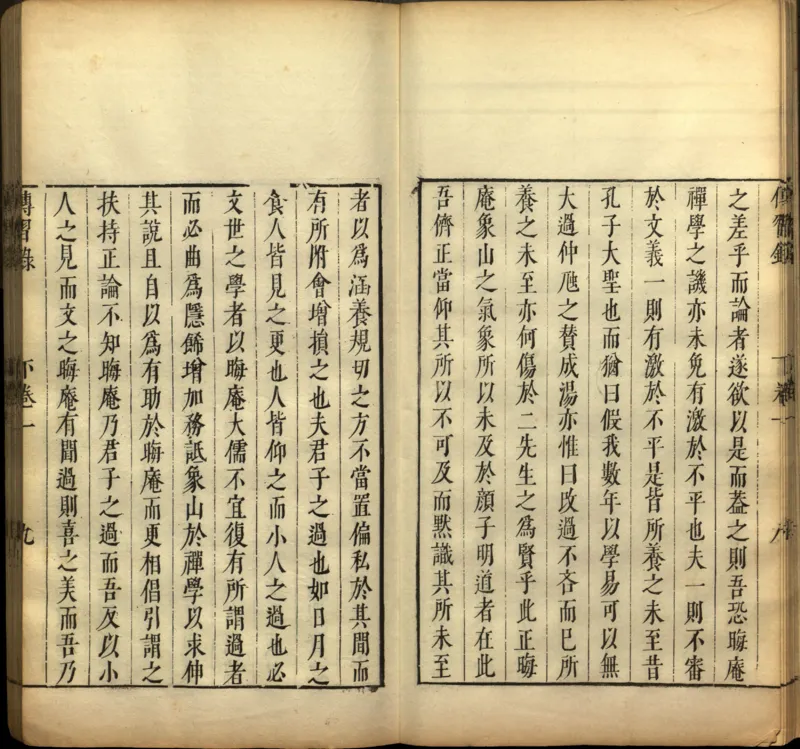 傳習錄
下卷一
八
之差乎而論者遂欲以是而葢之則吾恐晦庵
禪學之譏亦未免有激於不平也夫一則不審
於文義一則有激於不平是皆所養之未至昔
孔子大聖也而猶曰假我數年以學易可以無
大過仲虺之贊成湯亦惟曰攺過不吝而已所
養之未至亦何傷於二先生之爲賢乎此正晦
庵象山之氣象所以未及於顔子明道者在此
吾儕正當仰其所以不可及而默識其所未至
者以爲涵養規切之方不當置偏私於其間而
有所附會增損之也夫君子之過也如日月之
食人皆見之更也人皆仰之而小人之過也必
文世之學者以晦庵大儒不宜復有所謂過者
而必曲爲隱餙增加務詆象山於禪學以求伸
其說且自以爲有助於晦庵而更相倡引謂之
扶持正論不知晦庵乃君子之過而吾反以小
人之見而文之晦庵有聞過則喜之美而吾乃
傳習錄
下卷一
九